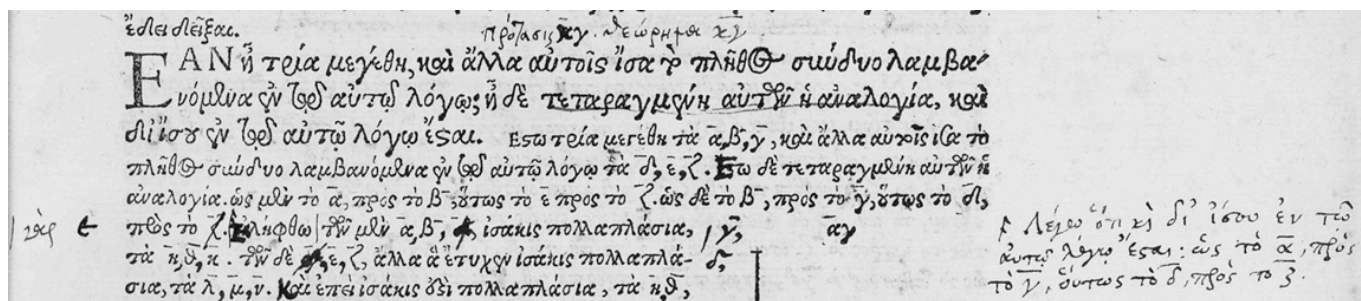 ἔδει δεῖξαι.
πρότασις κγ. θεώρημα κγ
ΕΑΝ ᾖ τρία μεγέθη, καὶ ἄλλα αὐτοῖς ἴσα τὸ πλῆθος σύνδυο λαμβα-
νόμενα ἐν τῷ αὐτῷ λόγῳ, ᾖ δὲ τεταραγμένη αὐτῶν ἡ ἀναλογία, καὶ
δι' ἴσου ἐν τῷ αὐτῷ λόγῳ ἔσται. Εστω τρία μεγέθη τὰ α, β, γ, καὶ ἄλλα αὐτοῖς ἴσα τὸ
πλῆθος σύνδυο λαμβανόμενα ἐν τῷ αὐτῷ λόγῳ τὰ δ, ε, ζ. Εστω δὲ τεταραγμένη αὐτῶν ἡ
ἀναλογία. ὡς μὲν τὸ α, προς τὸ β, οὕτως τὸ ε προς τὸ ζ. ὡς δὲ τὸ β, πρὸς τὸ γ, οὕτως τὸ δ,
πρὸς τὸ Εἰλήφθω τῶν μὲν α, β, ἰσάκις πολλαπλάσια, γ, αγ
τὰ η, θ, κ. τῶν δὲ ε, ζ, ἄλλα ἃ ἔτυχεν ἰσάκις πολλαπλά- δ,
σια, τὰ λ, μ, ν. Καὶ ἐπεὶ ἰσάκις ἐστὶ πολλαπλάσια, τὰ η, θ,
Λέγω ὅτι κὶ δι' ἴσου ἐν τῷ
αὐτῷ λόγῳ ἔσται: ὡς τὸ α, πρὸς
τὸ γ, οὕτως τὸ δ, πρὸς το ζ.